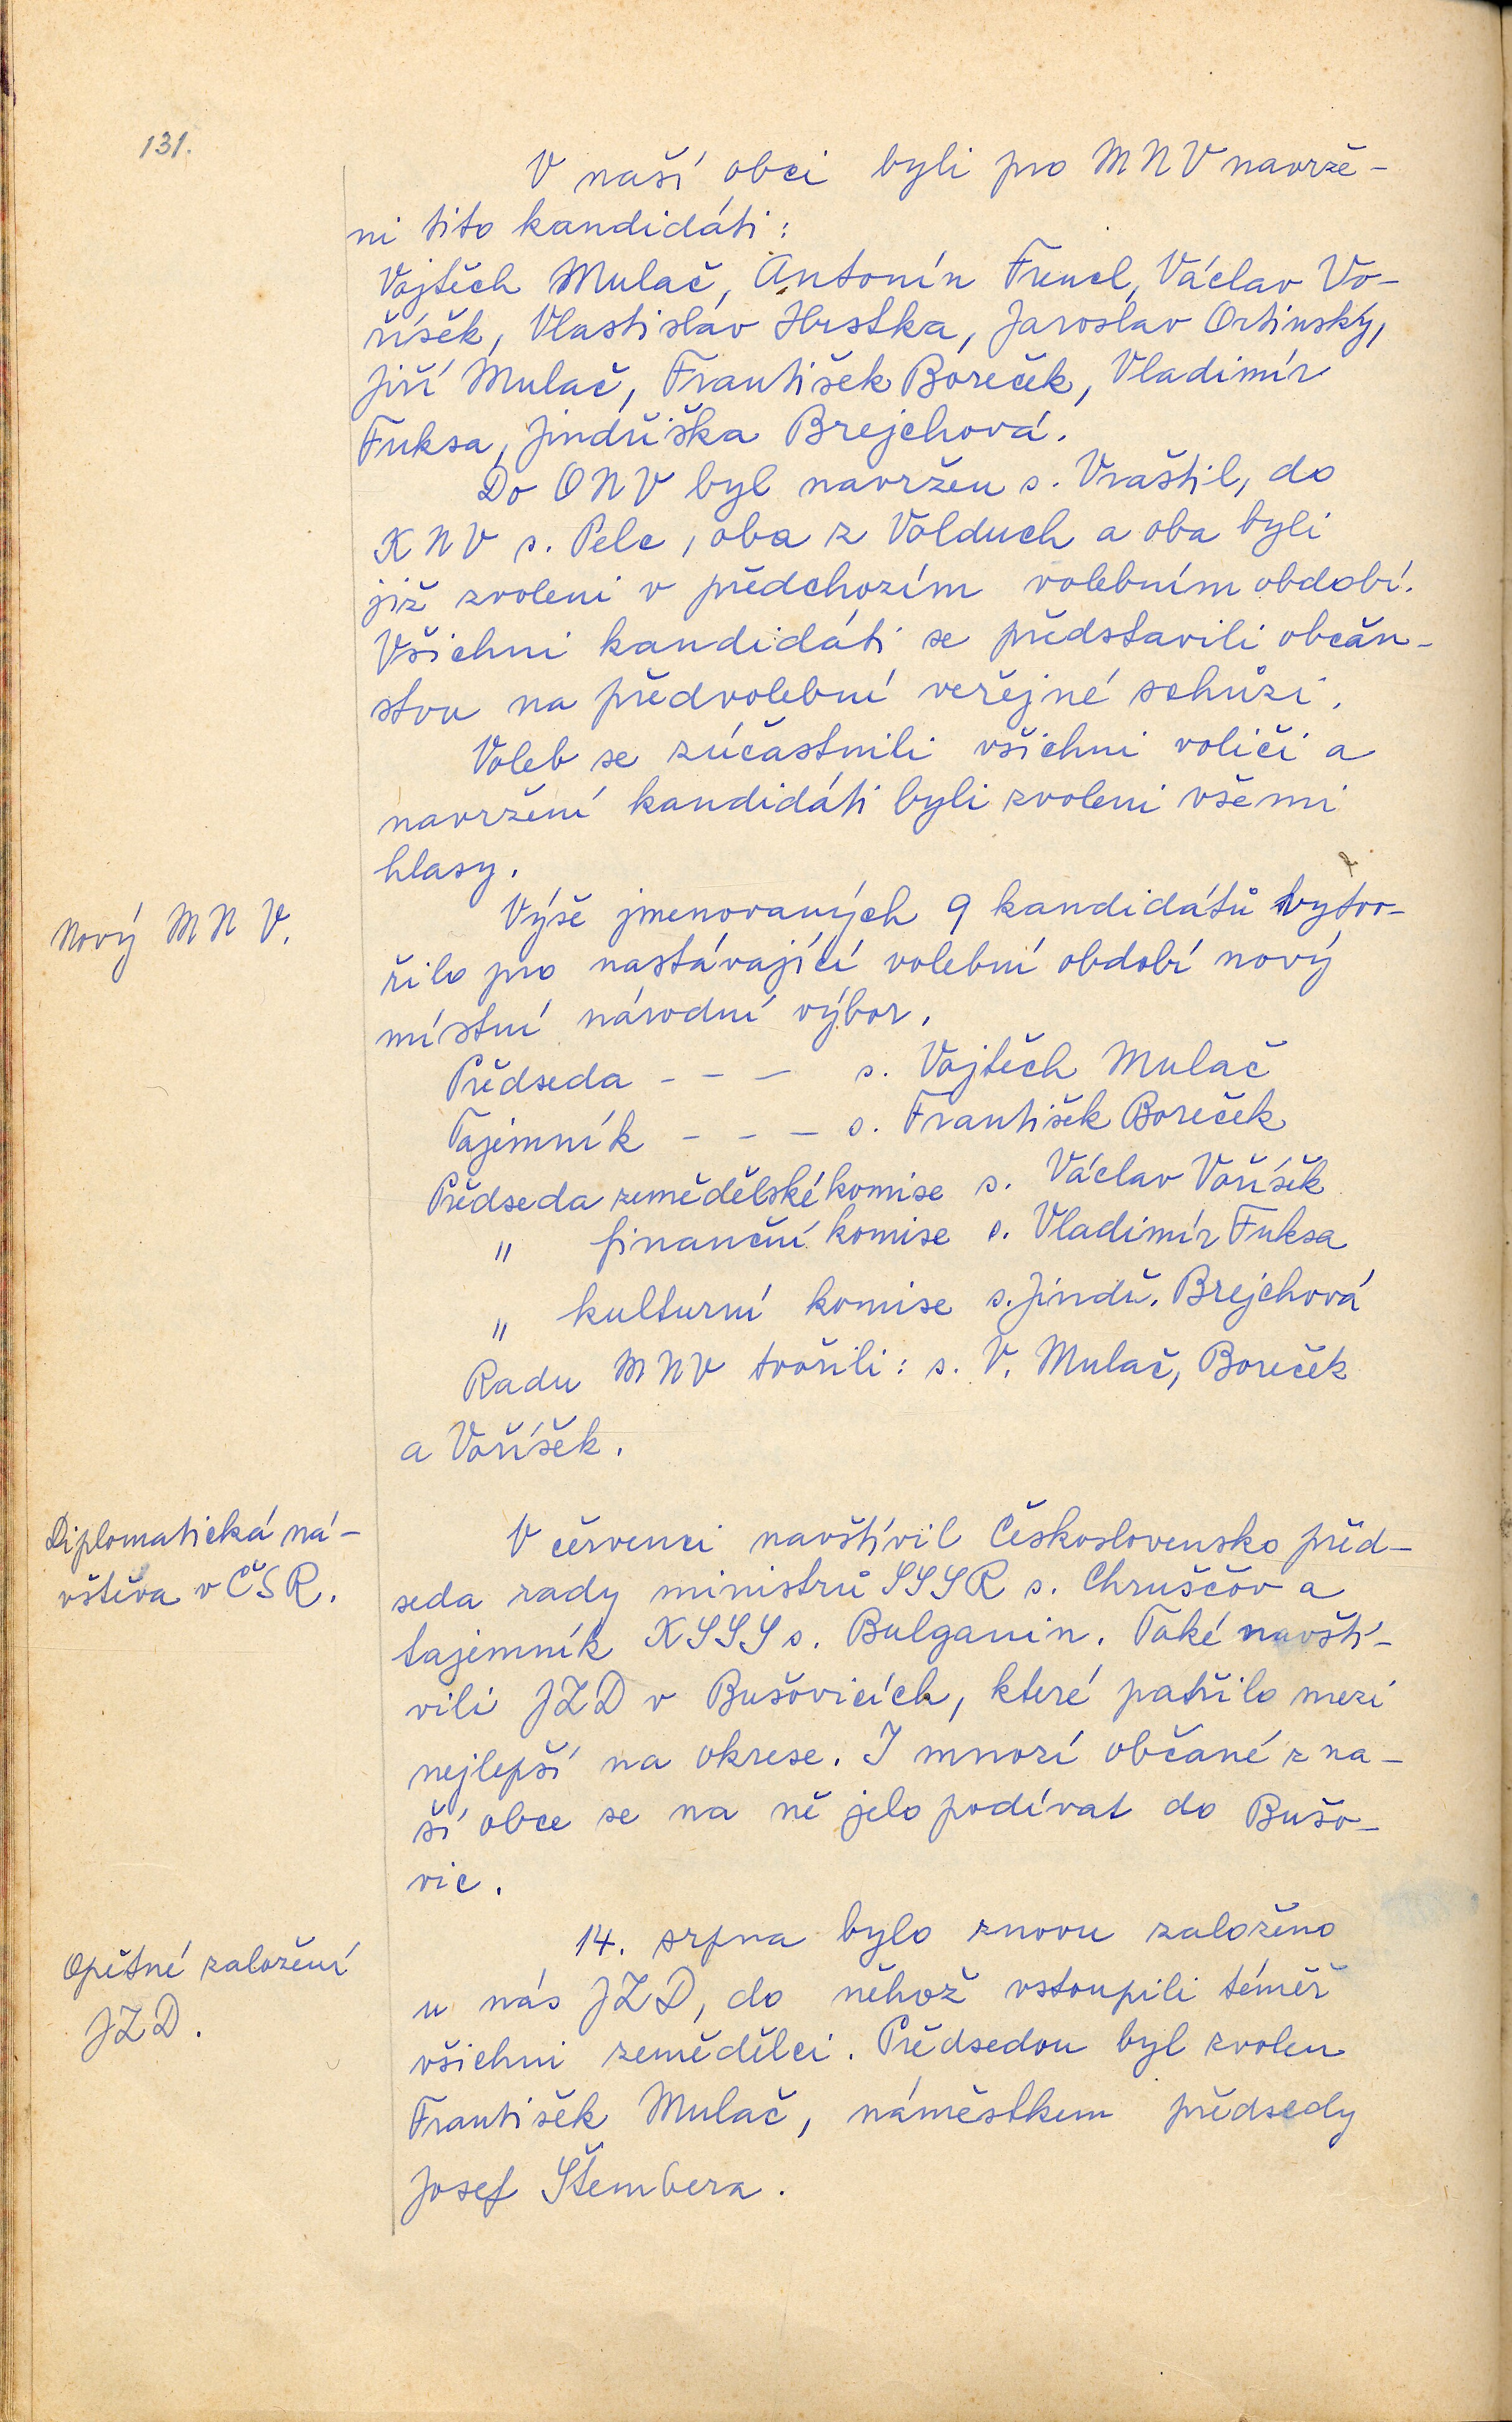 131.
V naší obci byli pro MNV navrže-
ni tito kandidáti:
Vojtěch Mulač, Antonín Frencl, Václav Vo-
říšek, Vlastislav Hrstka, Jaroslav Ortinský,
Jiří Mulač, František Boreček, Vladimír
Fuksa, Jindřiška Brejchová.
Do ONV byl navržen s. Vraštil, do
KNV s. Pelc, oba z Volduch a oba byli
již zvoleni v předchozím volebním období.
Všichni kandidáti se představili občan-
stvu na předvolební veřejné schůzi.
Voleb se zúčastnili všichni voliči a
navržení kandidáti byli zvoleni všemi
hlasy.
Nový MNV.
Výše jmenovaných 9 kandidátů vytvo-
řilo pro nastávající volební období nový
místní národní výbor.
Předseda - - - s. Vojtěch Mulač
Tajemník - - - s. František Boreček
Předseda zemědělské komise s. Václav Voříšek
" finanční komise s. Vladimír Fuksa
" kulturní komise s. Jindř. Brejchová
Radu MNV tvořili: s. V. Mulač, Boreček
a Voříšek.
Diplomatická ná-
vštěva v ČSR.
V červenci navštívil Československo před-
seda rady ministrů SSSR s. Chruščov a
tajemník KSSS s. Bulganin. Také navští-
vili JZD v Bušovicích, které patřilo mezi
nejlepší na okrese. I mnozí občané z na-
ší obce se na ně jelo podívat do Bušo-
vic.
Opětné založení
JZD.
14. srpna bylo znovu založeno
u nás JZD, do něhož vstoupili téměř
všichni zemědělci. Předsedou byl zvolen
František Mulač, náměstkem předsedy
Josef Štembera.